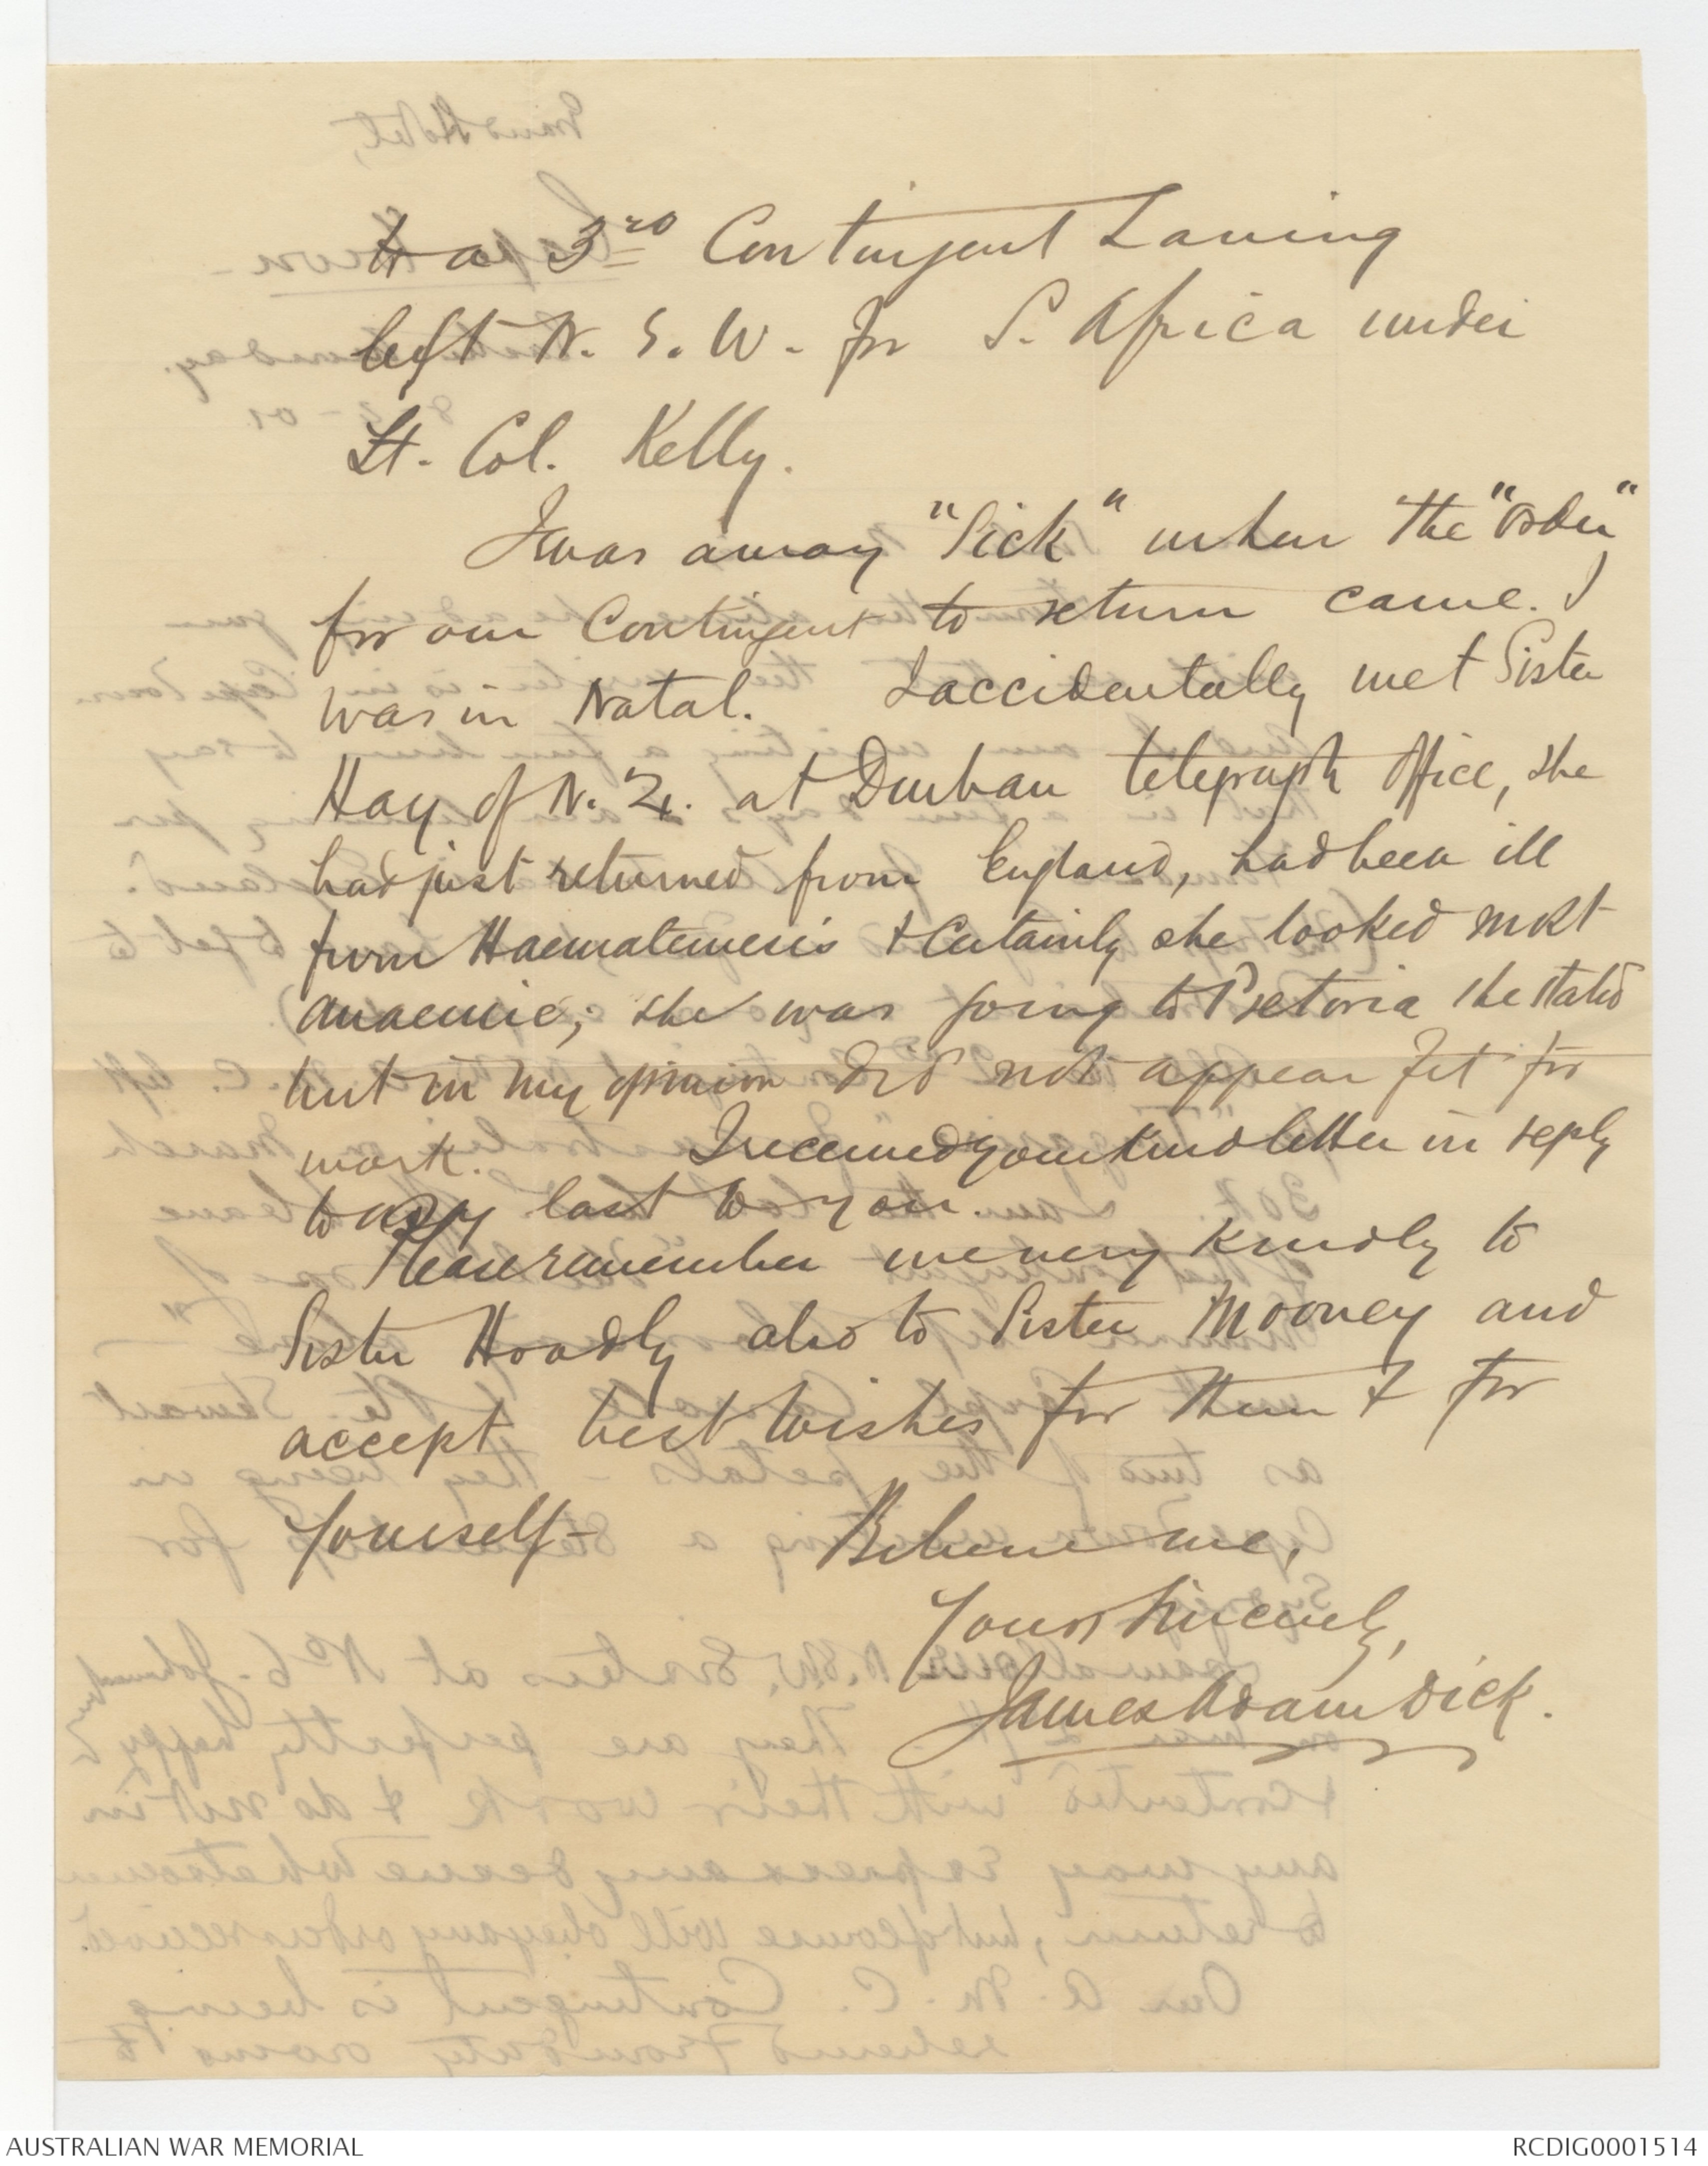 to a 3rd Contingent having
left N. S. W. for S. Africa under
Lt. Col. Kelly.
I was away "Sick" when the "order"
for our Contingent to return came. I
was in Natal. I accidentally met Sister
Hay of N. Z. at Durban telegraph office, she
had just returned from England, had been ill
from Haematemesis & Certainly she looked most
anaemic; she was going to Pretoria she stated
but in my opinion did not appear fit for
work. I received your kind letter in reply
to my last to you.
Please remember me very kindly to
Sister Hoadly also to Sister Mooney and
accept best wishes for them & for
Yourself-
Believe me,
Yours Sincerely,
James Adam Dick.
AUSTRALIAN WAR MEMORIAL
RCDIG0001514